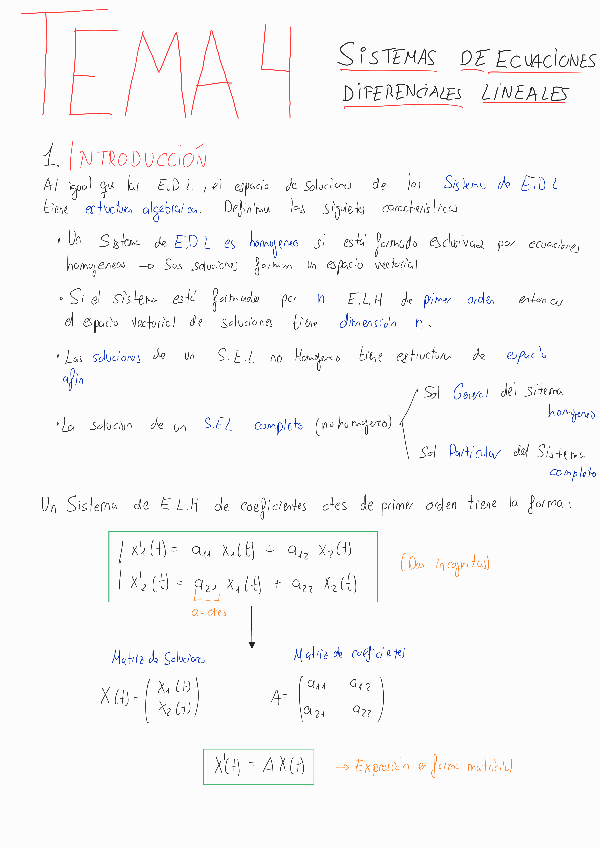 TEMA 4
SISTEMAS DE ECUACIONES
DIFERENCIALES LINEALES
1. INTRODUCCIÓN
Al igual que las E.D.L, el espacio de soluciones de los Sistema de E.D.L
tiene estructura algebraica. Definimos las siguientes características
• Un Sistema de E.D.L es homogeneo si está formado exclusivamente por ecuaciones
homogeneas → Sus soluciones forman un espacio vectorial
• Si el sistema está formado por n E.L.H de primer orden entonces
el espacio vectorial de soluciones tiene dimensión n.
• Las soluciones de un S.E.L no Homogeneo tiene estructura de espacio
afin
• La solucion de un S.E.L completo (no homogeneo)
Sol General del sistema
homogeneo
Sol Particular del Sistema
completo
Un Sistema de E.L.H de coeficientes ctes de primer orden tiene la forma:
x₁'(t) = a₁₁ x₁(t) + a₁₂ x₂(t)
x₂'(t) = a₂₁ x₁(t) + a₂₂ x₂(t)
(Dos incognitas)
a→ctes
Matriz de Soluciones
Matriz de coeficientes
X(t) = (x₁(t)
x₂(t))
A = (a₁₁ a₁₂
a₂₁ a₂₂)
X'(t) = A X(t) → Expresión en forma matricial